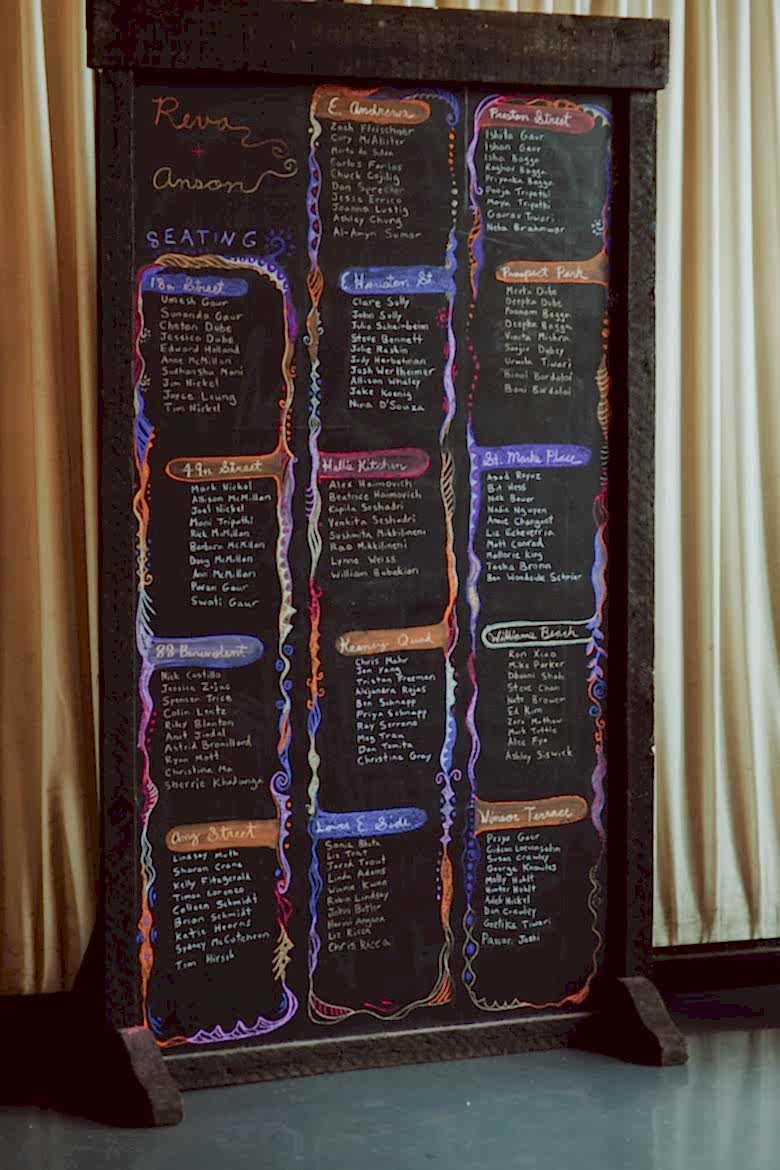 Reva
+
Anson
SEATING
18th Street
Umesh Gaur
Sunanda Gaur
Chetan Dube
Jessica Dube
Edward Holland
Anne McMillan
Sudhanshu Mani
Jim Nickel
Joyce Leung
Tim Nickel
49th Street
Mark Nickel
Allison McMillan
Joel Nickel
Mani Tripathi
Rick McMillan
Barbara McMillan
Doug McMillan
Ann McMillan
Pavan Gaur
Swati Gaur
88 Benevolent
Nick Castillo
Jessica Zojas
Spenser Trice
Colin Lentz
Riley Blanton
Amit Jindal
Astrid Brouillard
Ryan Mott
Christina Ma
Sherrie Khadanga
Amy Street
Lindsay Muth
Sharon Crane
Kelly Fitzgerald
Timon Lorenzo
Colleen Schmidt
Brian Schmidt
Katie Hearns
Sydney McCutcheon
Tim Hirsch
E. Andrews
Zach Fleischner
Cory McAlister
Marta da Silva
Carlos Farias
Chuck Cajilig
Dan Sprecher
Jesse Errico
Joanna Lustig
Ashley Chung
Al-Amyn Sumar
E Houston St
Clare Sully
John Sully
Julia Scheinbeim
Steve Bennett
Julie Raskin
Judy Herbstman
Josh Wertheimer
Allison Whaley
Jake Koenig
Nina D'Souza
Hell's Kitchen
Alex Haimovich
Beatrice Haimovich
Kapila Seshadri
Venkita Seshadri
Sushmita Mikkilineni
Rao Mikkilineni
Lynne Weiss
William Babakian
Keeney Quad
Chris Mahr
Jon Yang
Tristan Freeman
Alejandra Rojas
Ben Schnapp
Priya Schnapp
Ray Serrano
Meg Tran
Dan Tomita
Christina Gray
Lower E. Side
Liz Trout
Jared Trout
Linda Adams
Robin Lindsay
John Butler
Liz Ricca
Chris Ricca
Preston Street
Ishita Gaur
Ishan Gaur
Isha Bagga
Raghav Bagga
Priyanka Bagga
Pooja Tripathi
Maya Tripathi
Gaurav Tiwari
Neha Brahmwar
Prospect Park
Meeta Dube
Deepka Dube
Poonam Bagga
Deepka Bagga
Vinita Mishra
Dubey
Urmila Tiwari
Binoi Bordoloi
Boni Bordoloi
St. Marks Place
Asad Reyaz
Bill Hess
Nick Bauer
Nafia Nguyen
Amie Changust
Liz Echeverria
Matt Conrad
Mallorie King
Tasha Bronn
Ben Woodside Schrier
Williams Beach
Ron Xiao
Mike Parker
Dhvani Shah
Steve Chan
Nate Brower
Ed Kim
Zara Mathew
Mark Tuttle
Alec Fyo
Ashley Siswick
Winsor Terrace
Priya Gaur
Gideon Loewensohn
Susan Crawley
George Knowles
Hunter Heldt
Adel Nickel
Dan Crawley
Geetika Tiwari
Pawan Joshi